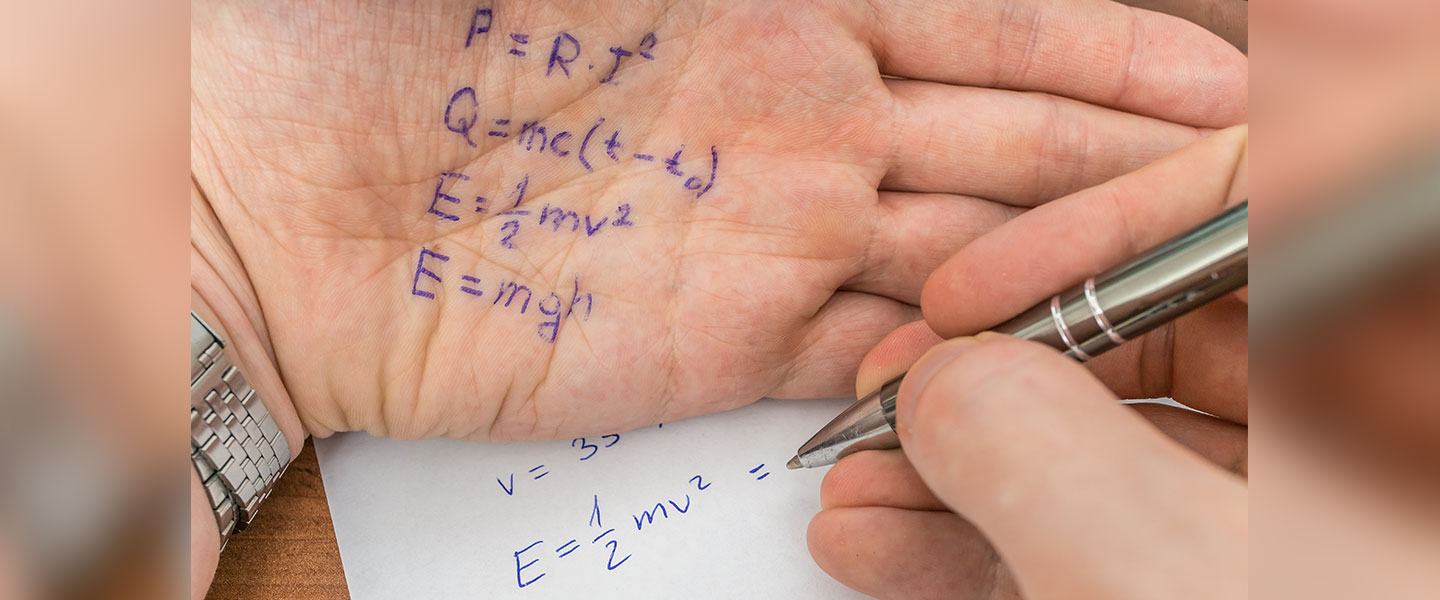 P = R . I²
Q = mc(t - t₀)
E = 1/2 mv²
E = mgh
v = 35
E = 1/2 mv² =